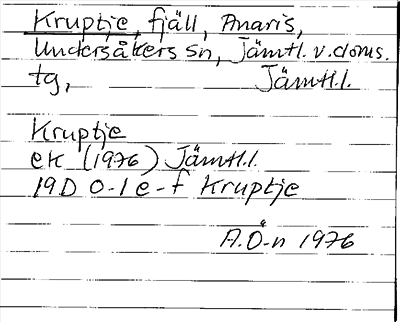 Kruptje, fjäll, Anaris,
Undersåkers sn, Jämtl. v. doms.
tg, Jämtl.l.
Kruptje
ek (1976) Jämtl.l.
19D 0-1 e-f Kruptje
A.Ö-n 1976